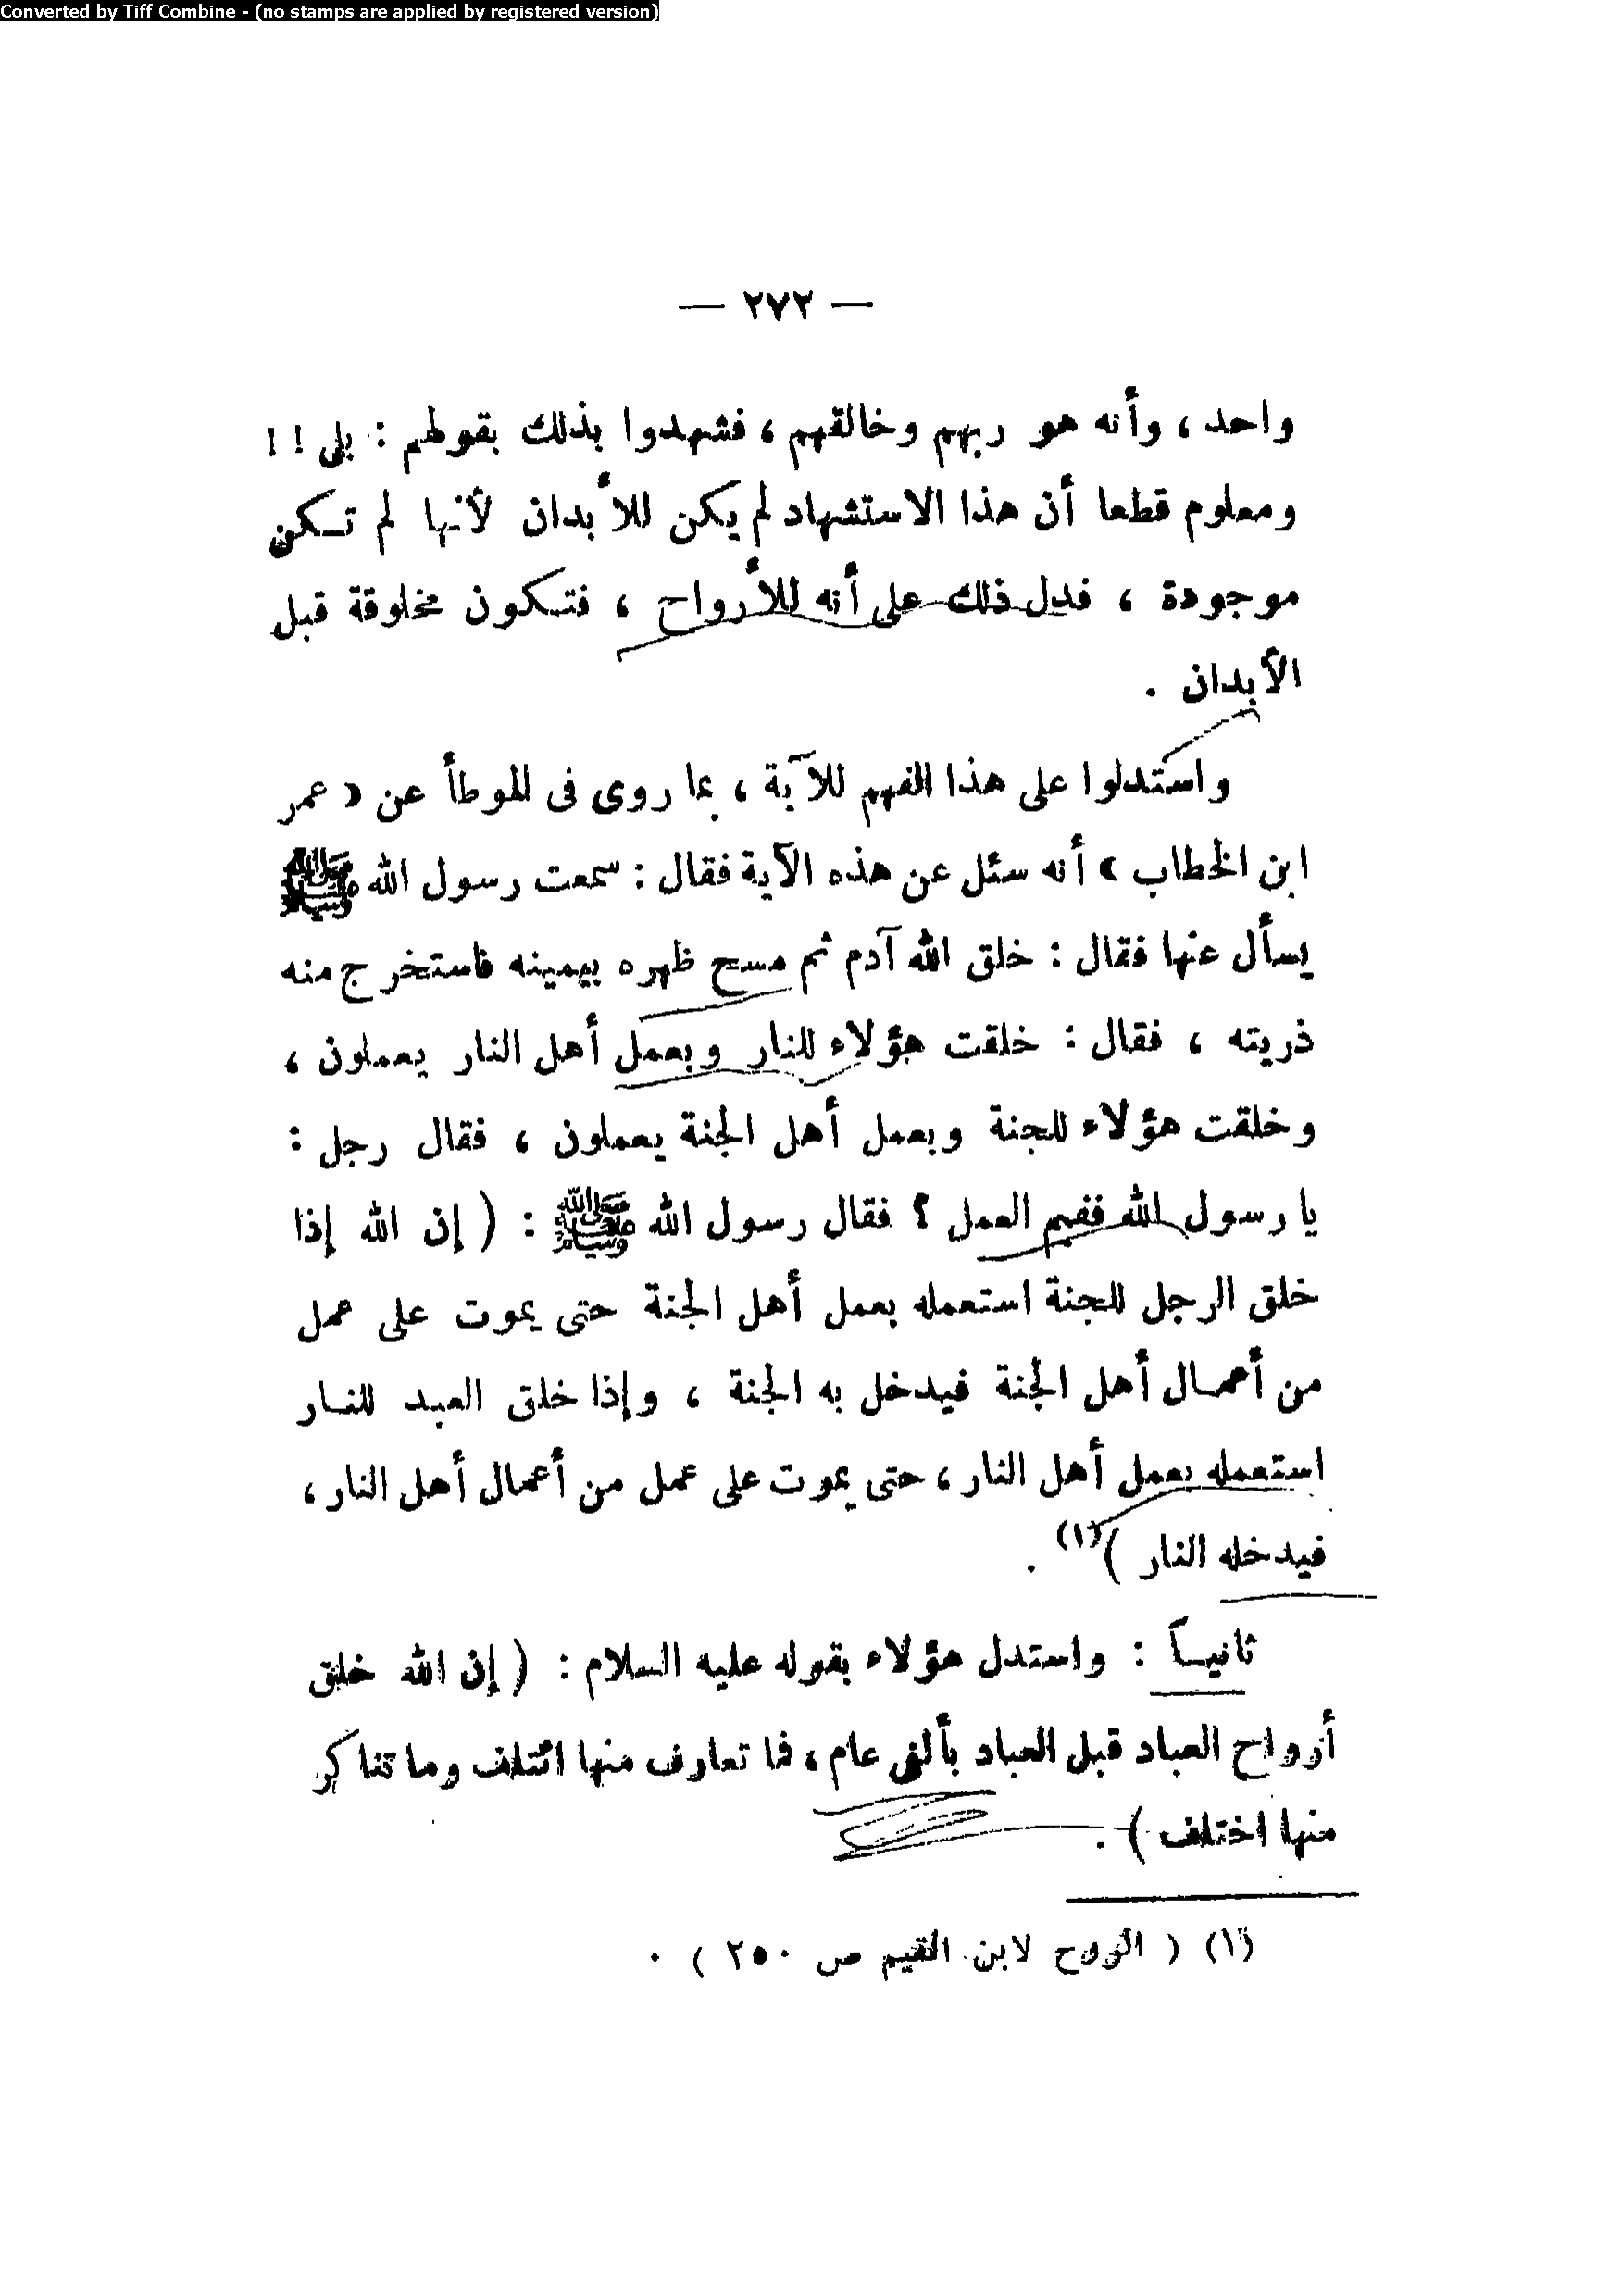 Converted by Tiff Combine - (no stamps are applied by registered version)
— ٢٧٢ —
واحد ، وأنه هو ربهم وخالقهم ، فشهدوا بذلك بقولهم : بلى ! !
ومعلوم قطعا أن هذا الاستشهاد لم يكن للأبدان لأنها لم تكن
موجودة ، فدل ذلك على أنه للأرواح ، فتكون مخلوقة قبل
الأبدان .
واستدلوا على هذا الفهم للآية ، بما روى فى الموطأ عن « عمر
ابن الخطاب » أنه سئل عن هذه الآية فقال : سمعت رسول الله ﷺ
يسأل عنها فقال : خلق الله آدم ثم مسح ظهره بيمينه فاستخرج منه
ذريته ، فقال : خلقت هؤلاء للنار وبعمل أهل النار يعملون ،
وخلقت هؤلاء للجنة وبعمل أهل الجنة يعملون ، فقال رجل :
يا رسول الله ففيم العمل ؟ فقال رسول الله ﷺ : ( إن الله إذا
خلق الرجل للجنة استعمله بعمل أهل الجنة حتى يموت على عمل
من أعمال أهل الجنة فيدخل به الجنة ، وإذا خلق العبد للنار
استعمله بعمل أهل النار ، حتى يموت على عمل من أعمال أهل النار ،
فيدخله النار )(١) .
ثانياً : واستدل هؤلاء بقوله عليه السلام : ( إن الله خلق
أرواح العباد قبل العباد بألفى عام ، فما تعارف منها ائتلف وما تناكر
منها اختلف ) .
(١) ( الروح لابن القيم ص ٢٥٠ ) .